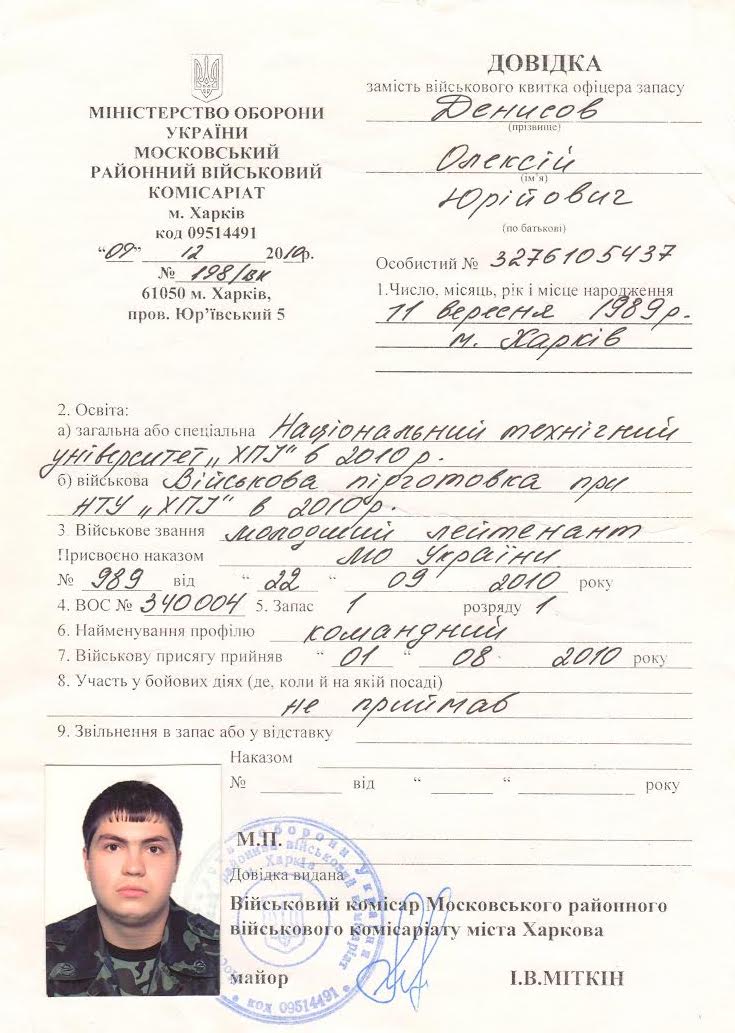 МІНІСТЕРСТВО ОБОРОНИ
УКРАЇНИ
МОСКОВСЬКИЙ
РАЙОННИЙ ВІЙСЬКОВИЙ
КОМІСАРІАТ
м. Харків
код 09514491
“07” 12 2010р.
№ 198/вк
61050 м. Харків,
пров. Юр’ївський 5
ДОВІДКА
замість військового квитка офіцера запасу
Денисов
(прізвище)
Олексій
(ім’я)
Юрійович
(по батькові)
Особистий № 3276105437
1.Число, місяць, рік і місце народження
11 вересня 1989р.
м. Харків
2. Освіта:
а) загальна або спеціальна Національний технічний
університет „ХПІ“ в 2010 р.
б) військова Військова підготовка при
НТУ „ХПІ“ в 2010р.
3 Військове звання молодший лейтенант
Присвоєно наказом МО України
№ 989 від “ 22 “ 09 2010 року
4. ВОС № 340004 5. Запас 1 розряду 1
6. Найменування профілю командний
7. Військову присягу прийняв “ 01 “ 08 2010 року
8. Участь у бойових діях (де, коли й на якій посаді)
не приймав
9. Звільнення в запас або у відставку
Наказом
№ від “ “ року
М.П.
Довідка видана
Військовий комісар Московського районного
військового комісаріату міста Харкова
майор І.В.МІТКІН
оборони України
районний військовий комісаріат
Харків
код 09514491